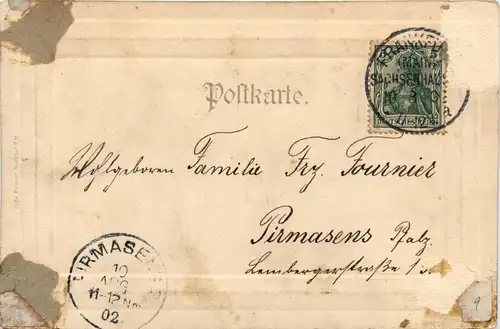 FRANKFURT
5
(MAIN)
SACHSENHAUSEN
Postkarte.
Wohlgeboren Familie Frz. Fournier
Pirmasens Pfalz.
Lembergerstraße
PIRMASENS
10
AUG
11-12 Nm.
02.